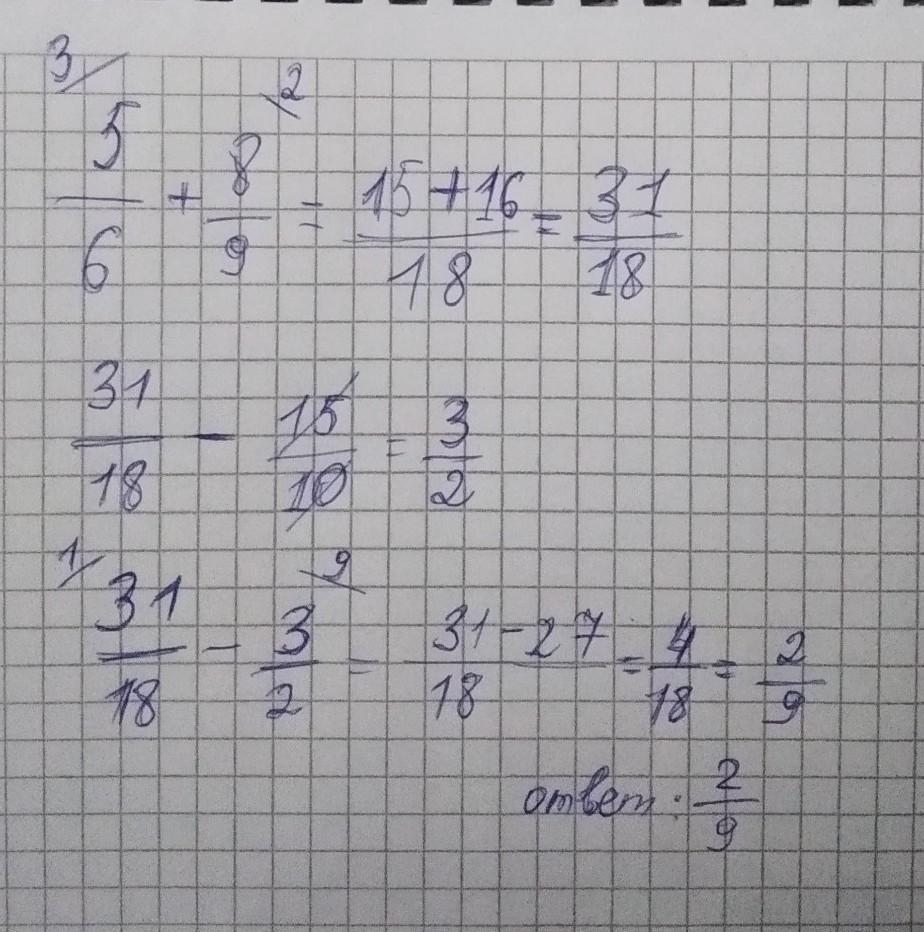 3/ 5/6 + 8/9 \2 = 15+16/18 = 31/18
31/18 - 15/10 = 3/2
1/ 31/18 - 3/2 \9 = 31-27/18 = 4/18 = 2/9
ответ: 2/9